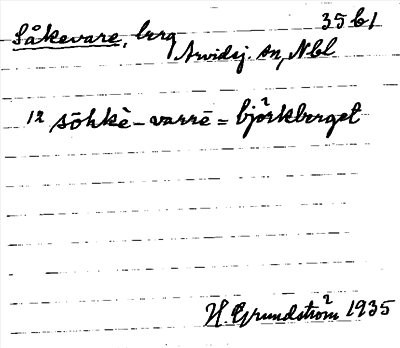 Såkevare, berg 35 b 1
Arvidsj. sn, Nbl
12 sōhkè-varrē = björkberget
H Grundström 1935